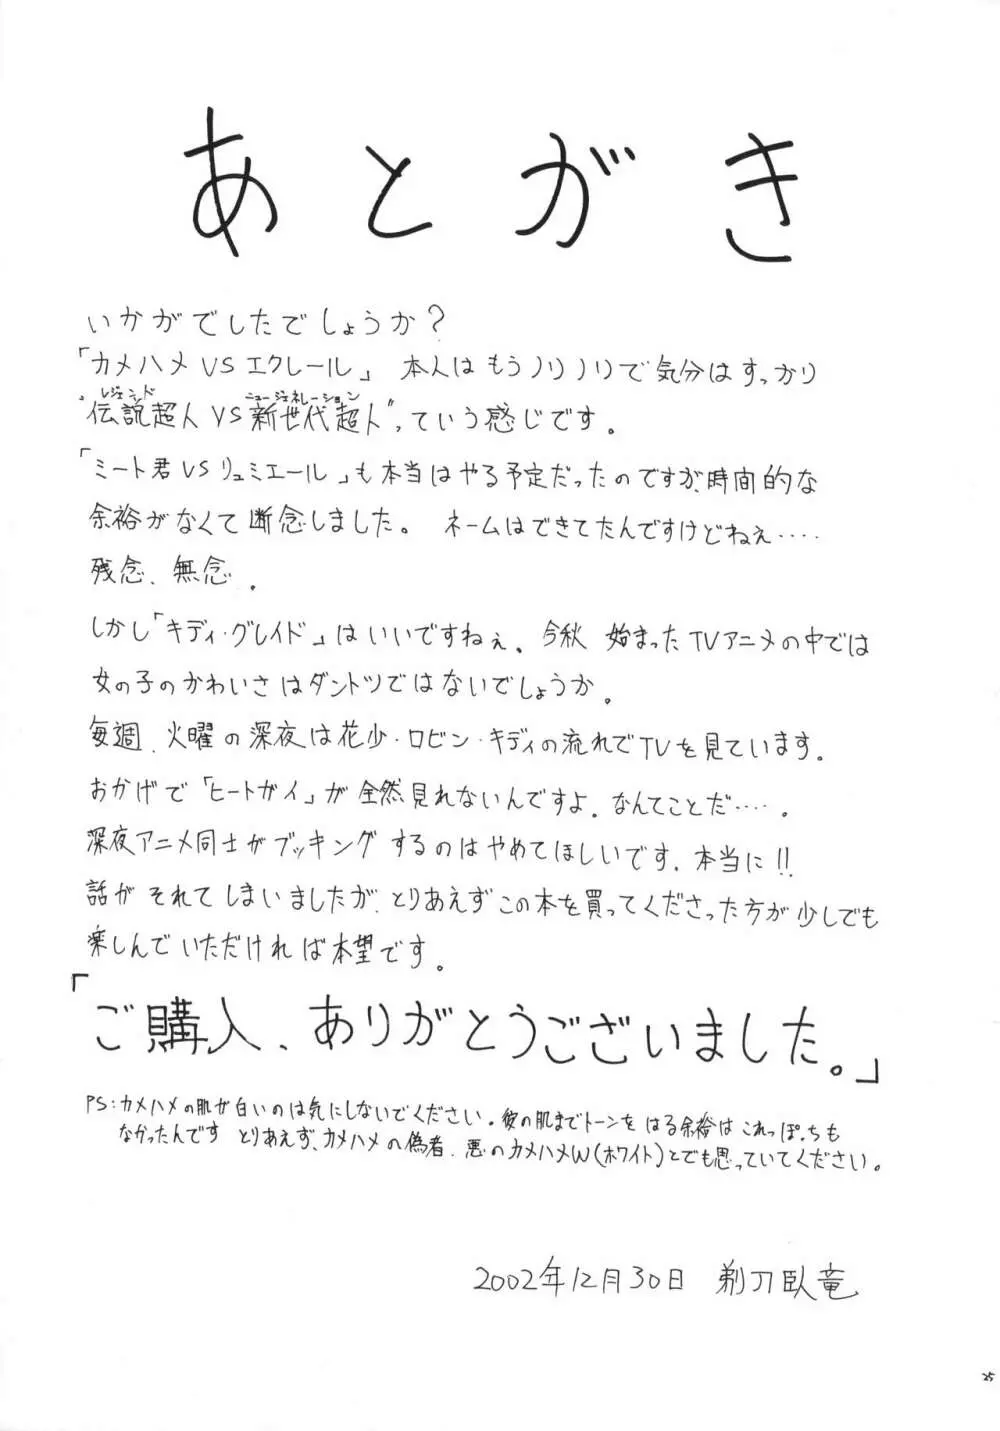 あとがき
いかがでしたでしょうか?
「カメハメVSエクレール」 本人はもうノリノリで気分はすっかり
レジェンド ニュージェネレーション
“伝説超人VS新世代超人”っていう感じです。
「ミート君VSリュミエール」も本当はやる予定だったのですが、時間的な
余裕がなくて断念しました。 ネームはできてたんですけどねぇ‥‥
残念、無念。
しかし「キディ・グレイド」はいいですねぇ。今秋 始まったTVアニメの中では
女の子のかわいさはダントツではないでしょうか。
毎週、火曜の深夜は花少・ロビン・キディの流れでTVを見ています。
おかげで「ヒートガイ」が全然見れないんですよ。なんてことだ‥‥。
深夜アニメ同士がブッキングするのはやめてほしいです。本当に!!
話がそれてしまいましたが、とりあえずこの本を買ってくださった方が少しでも
楽しんでいただければ本望です。
「ご購入、ありがとうございました。」
PS:カメハメの肌が白いのは気にしないでください。彼の肌までトーンをはる余裕はこれっぽっちも
なかったんです とりあえず、カメハメの偽者、悪のカメハメW(ホワイト)とでも思っていてください。
2002年12月30日 剃刀臥竜
25